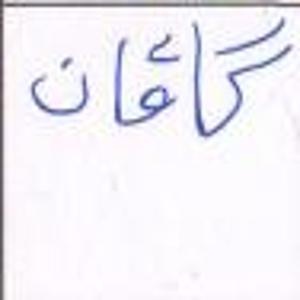 گاڤان